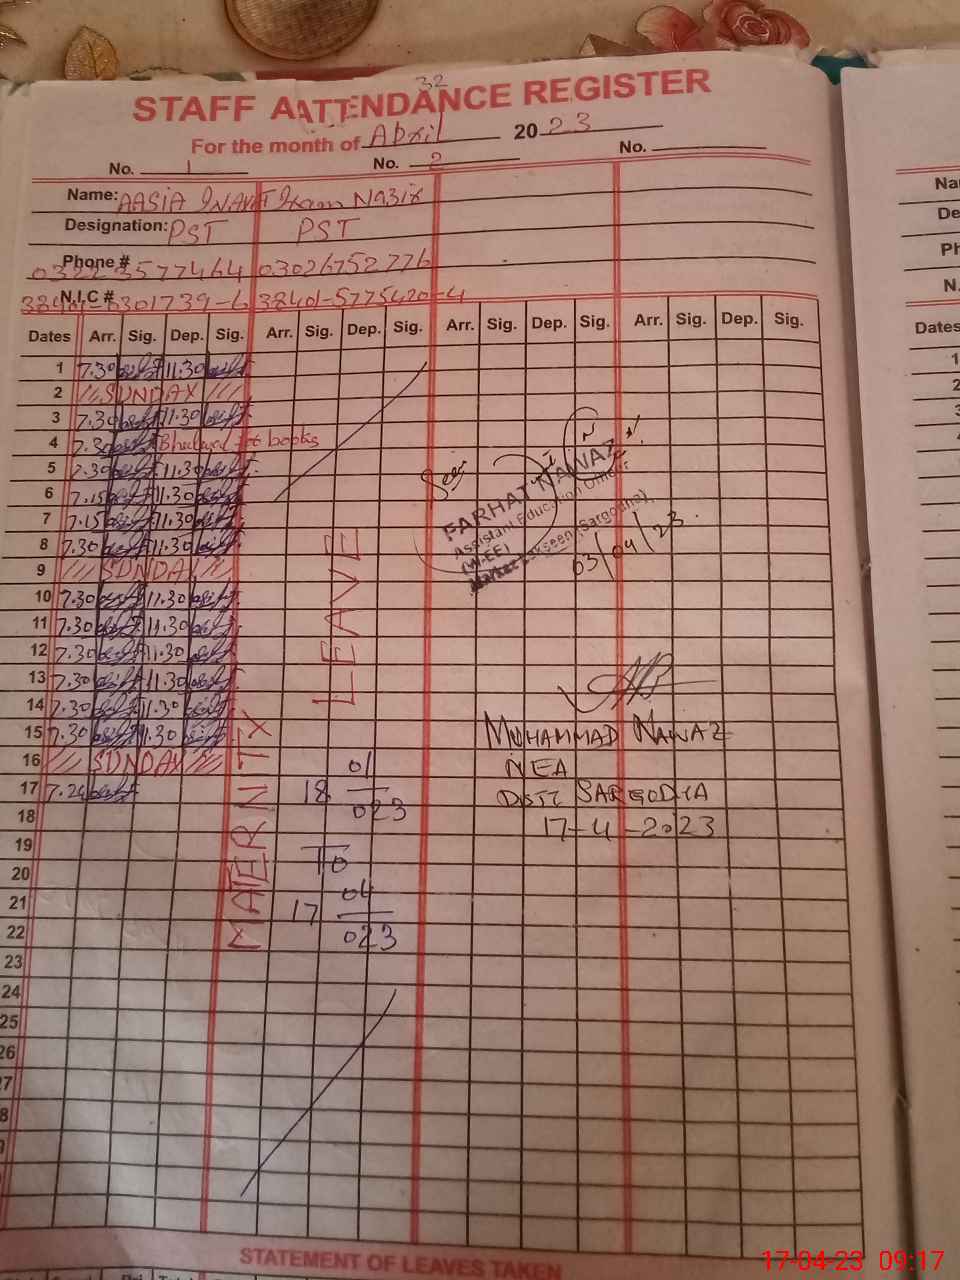 32
STAFF AATTENDANCE REGISTER
For the month of April 2023
No. 1 No. 2 No.
Name: AASIA INAYAT Iram Nazir
Designation: PST PST
Phone # 0322 3577464 03026752776
N.I.C # 38401-5775420-4
Dates Arr. Sig. Dep. Sig. Arr. Sig. Dep. Sig. Arr. Sig. Dep. Sig. Arr. Sig. Dep. Sig.
1 7.30 11.30
2 SUNDAY
3 7.30 11.30
4 7.30 for books
5 7.30 11.30
6 7.15 11.30
7 7.15 11.30
8 7.30 11.30
9 SUNDAY
10 7.30 11.30
11 7.30 11.30
12 7.30 11.30
13 7.30 11.30
14 7.30 11.30
15 7.30 11.30
16 SUNDAY
17 7.24
18
19
20
21
22
23
24
25
26
27
28
MATERNITY LEAVE
18 01
023
To
17 04
023
Seen
FARHAT NAWAZ
Assistant Education Officer
(W-EE)
(Sargodha)
03/04/23.
MUHAMMAD NAWAZ
MEA
DISTT SARGODHA
17-4-2023
STATEMENT OF LEAVES TAKEN
Na
De
Ph
N.
Dates
1
2
3
17-04-23 09:17